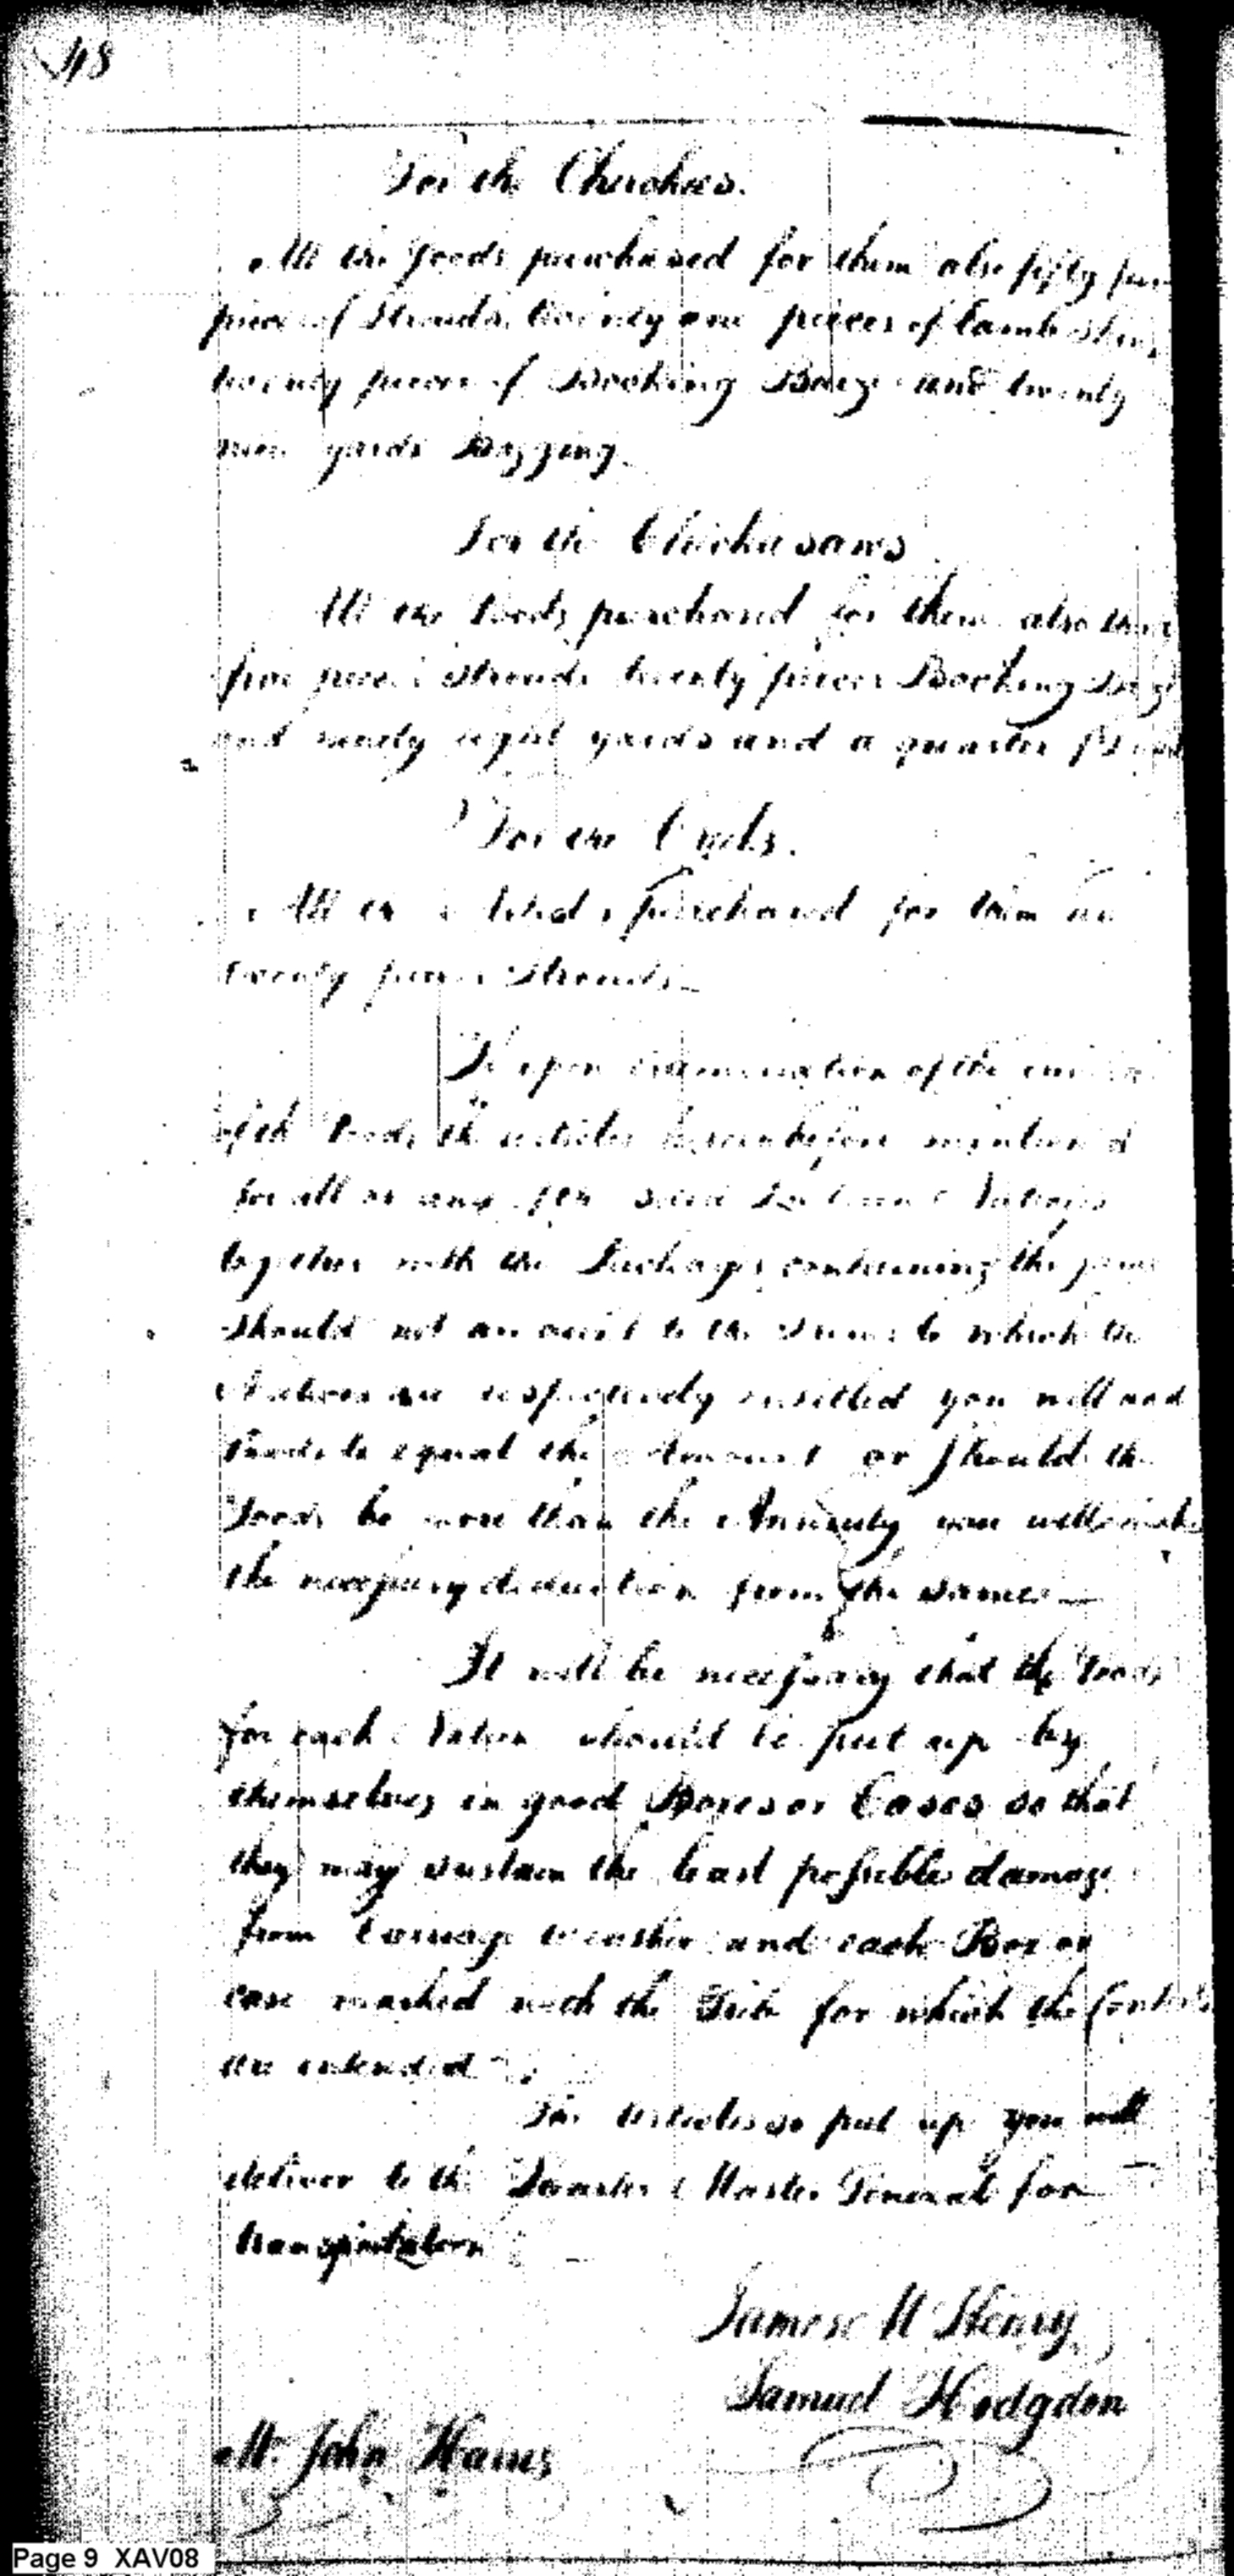 48
For the Cherokees.
All the Goods purchased for them also fifty
pieces of Strouds, twenty one pieces of
twenty pieces of Bocking Baize and twenty
nine yards Bagging
For the Chickasaws
All the Goods purchased for them also
five pieces Strouds twenty pieces Bocking Baize
and ninety eight yards and a quarter
For the Creeks.
All the Goods purchased for them
twenty pieces Strouds
If upon examination of the
of the Goods the articles hereinbefore mention'd
for all or any of the said Indian Nations
together with the Packages containing the same
should not amount to the Sums to which the
Nations are respectively entitled you will add
Goods to equal the Amount or should the
Goods be more than the Annuity you will make
the necessary deduction from the same
It will be necessary that the Goods
for each Nation should be put up by
themselves in good Boxes or Cases so that
they may sustain the least possible damage
from Carriage weather and each Box or
case marked with the Tribe for which the Contents
are intended
The Articles so put up you will
deliver to the Quarter Master General for
transportation
James McHenry
Samuel Hodgdon
Mr. John Harris
Page 9 XAV08